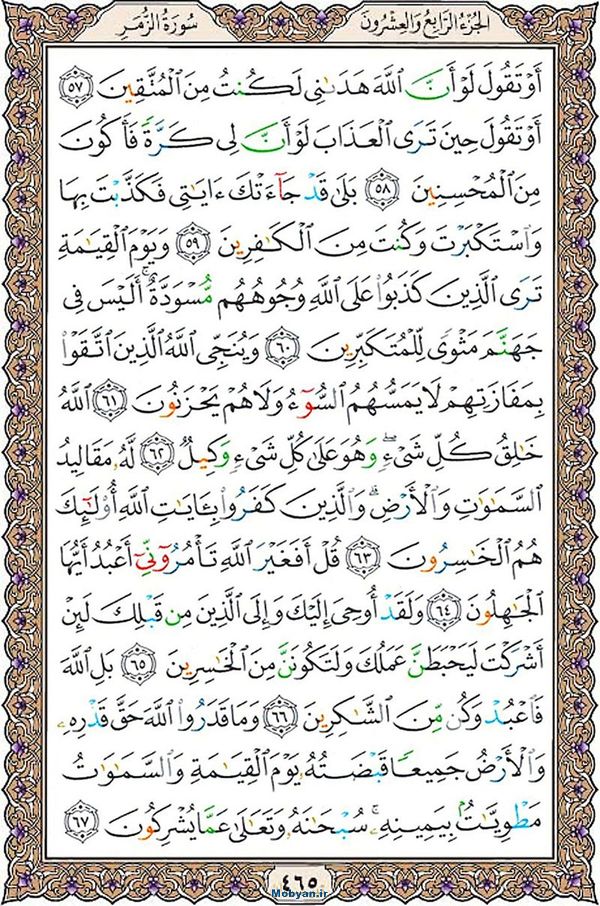 الجُزْءُ الرَّابِعُ وَالعِشْرُونَ
سُورَةُ الزُّمَرِ
أَوْ تَقُولَ لَوْ أَنَّ ٱللَّهَ هَدَىٰنِى لَكُنتُ مِنَ ٱلْمُتَّقِينَ ٥٧
أَوْ تَقُولَ حِينَ تَرَى ٱلْعَذَابَ لَوْ أَنَّ لِى كَرَّةً فَأَكُونَ
مِنَ ٱلْمُحْسِنِينَ ٥٨ بَلَىٰ قَدْ جَآءَتْكَ ءَايَٰتِى فَكَذَّبْتَ بِهَا
وَٱسْتَكْبَرْتَ وَكُنتَ مِنَ ٱلْكَٰفِرِينَ ٥٩ وَيَوْمَ ٱلْقِيَٰمَةِ
تَرَى ٱلَّذِينَ كَذَبُوا۟ عَلَى ٱللَّهِ وُجُوهُهُم مُّسْوَدَّةٌ ۚ أَلَيْسَ فِى
جَهَنَّمَ مَثْوًى لِّلْمُتَكَبِّرِينَ ٦٠ وَيُنَجِّى ٱللَّهُ ٱلَّذِينَ ٱتَّقَوْا۟
بِمَفَازَتِهِمْ لَا يَمَسُّهُمُ ٱلسُّوٓءُ وَلَا هُمْ يَحْزَنُونَ ٦١ ٱللَّهُ
خَٰلِقُ كُلِّ شَىْءٍ ۖ وَهُوَ عَلَىٰ كُلِّ شَىْءٍ وَكِيلٌ ٦٢ لَّهُۥ مَقَالِيدُ
ٱلسَّمَٰوَٰتِ وَٱلْأَرْضِ ۗ وَٱلَّذِينَ كَفَرُوا۟ بِـَٔايَٰتِ ٱللَّهِ أُو۟لَٰٓئِكَ
هُمُ ٱلْخَٰسِرُونَ ٦٣ قُلْ أَفَغَيْرَ ٱللَّهِ تَأْمُرُوٓنِّىٓ أَعْبُدُ أَيُّهَا
ٱلْجَٰهِلُونَ ٦٤ وَلَقَدْ أُوحِىَ إِلَيْكَ وَإِلَى ٱلَّذِينَ مِن قَبْلِكَ لَئِنْ
أَشْرَكْتَ لَيَحْبَطَنَّ عَمَلُكَ وَلَتَكُونَنَّ مِنَ ٱلْخَٰسِرِينَ ٦٥ بَلِ ٱللَّهَ
فَٱعْبُدْ وَكُن مِّنَ ٱلشَّٰكِرِينَ ٦٦ وَمَا قَدَرُوا۟ ٱللَّهَ حَقَّ قَدْرِهِۦ
وَٱلْأَرْضُ جَمِيعًا قَبْضَتُهُۥ يَوْمَ ٱلْقِيَٰمَةِ وَٱلسَّمَٰوَٰتُ
مَطْوِيَّٰتٌۢ بِيَمِينِهِۦ ۚ سُبْحَٰنَهُۥ وَتَعَٰلَىٰ عَمَّا يُشْرِكُونَ ٦٧
٤٦٥
Mobyan.ir